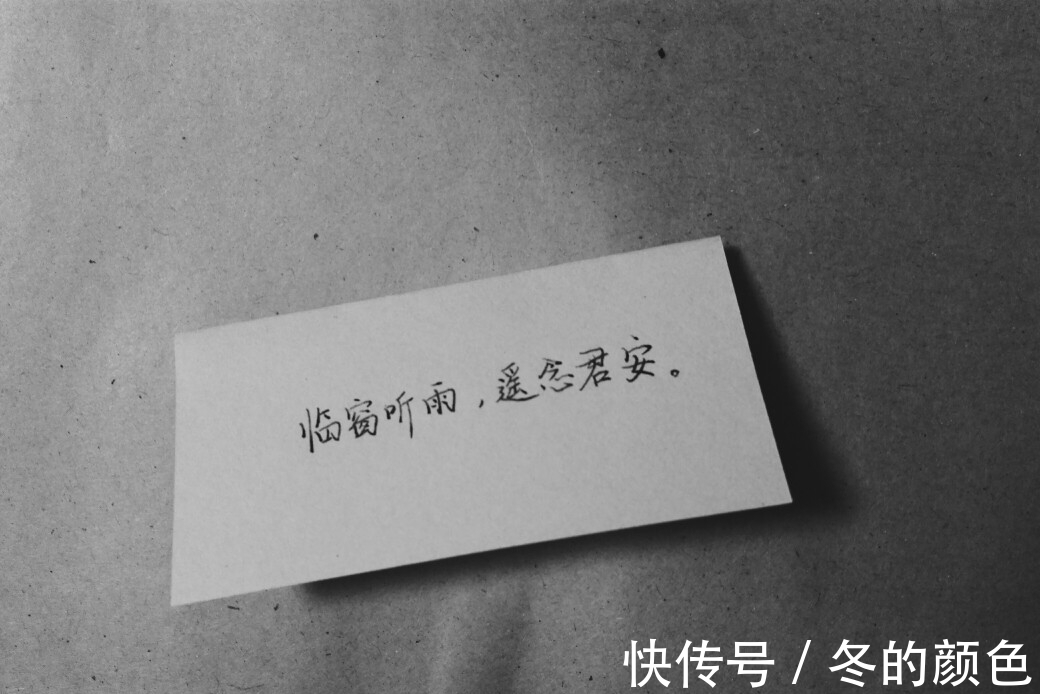 临窗听雨，遥念君安。
快传号 / 冬的颜色